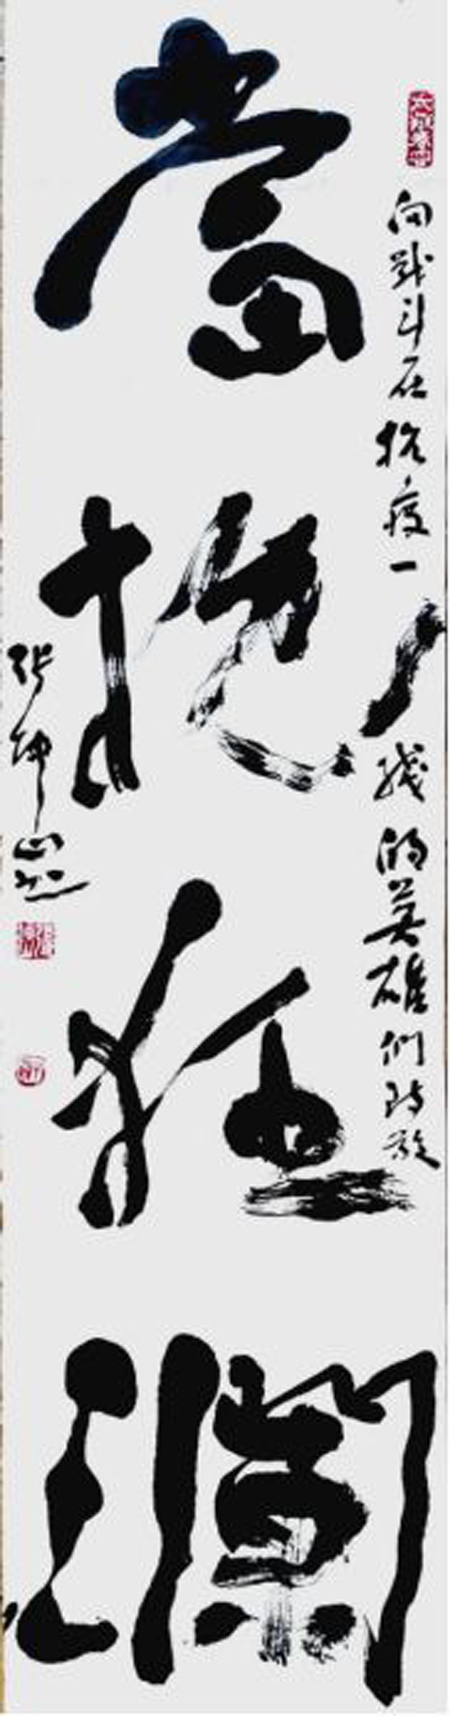 向战斗在抗疫一线的英雄们致敬
當挽狂瀾
张坤山